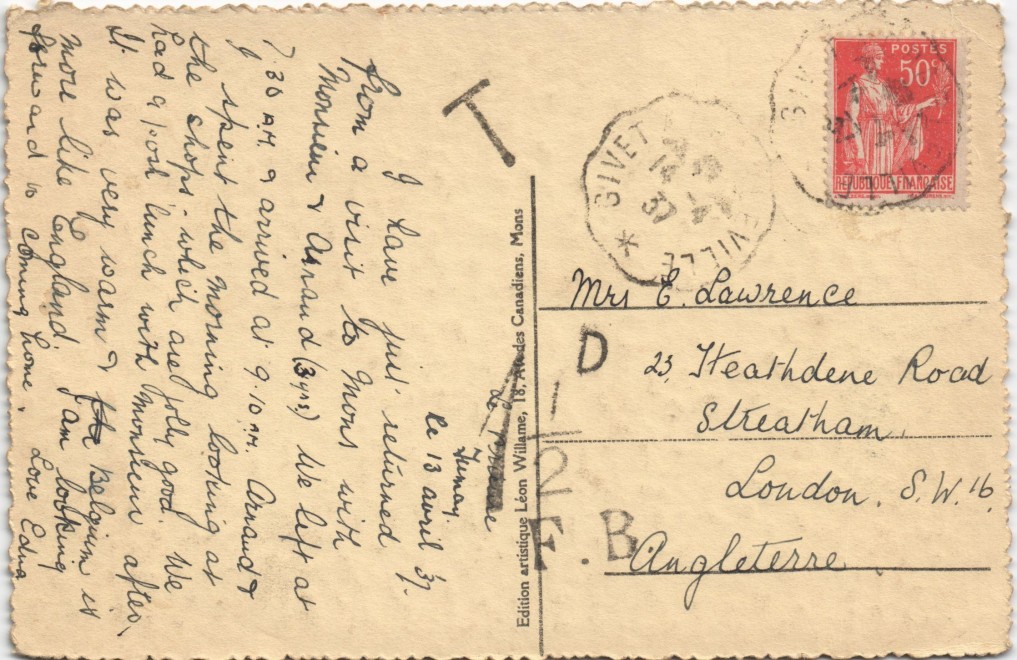 Fumay.
le 13 avril 37.
I have just returned
from a visit to Mons with
Monsieur & Arnaud (3 yrs) We left at
7.30 A.M. & arrived at 9.10 A.M. Arnaud &
I spent the morning looking at
the shops, which are jolly good. We
had a posh lunch with Monsieur after,
It was very warm & Belgium is
more like England. I am looking
forward to coming home. Love Edna
Edition artistique Léon Willame, 18, des Canadiens, Mons
T
GIVET
EVILLE
37
POSTES
50c
REPUBLIQUE FRANÇAISE
Mrs E. Lawrence
23, Heathdene Road
Streatham,
London. S.W. 16
Angleterre
D
1
2
F. B